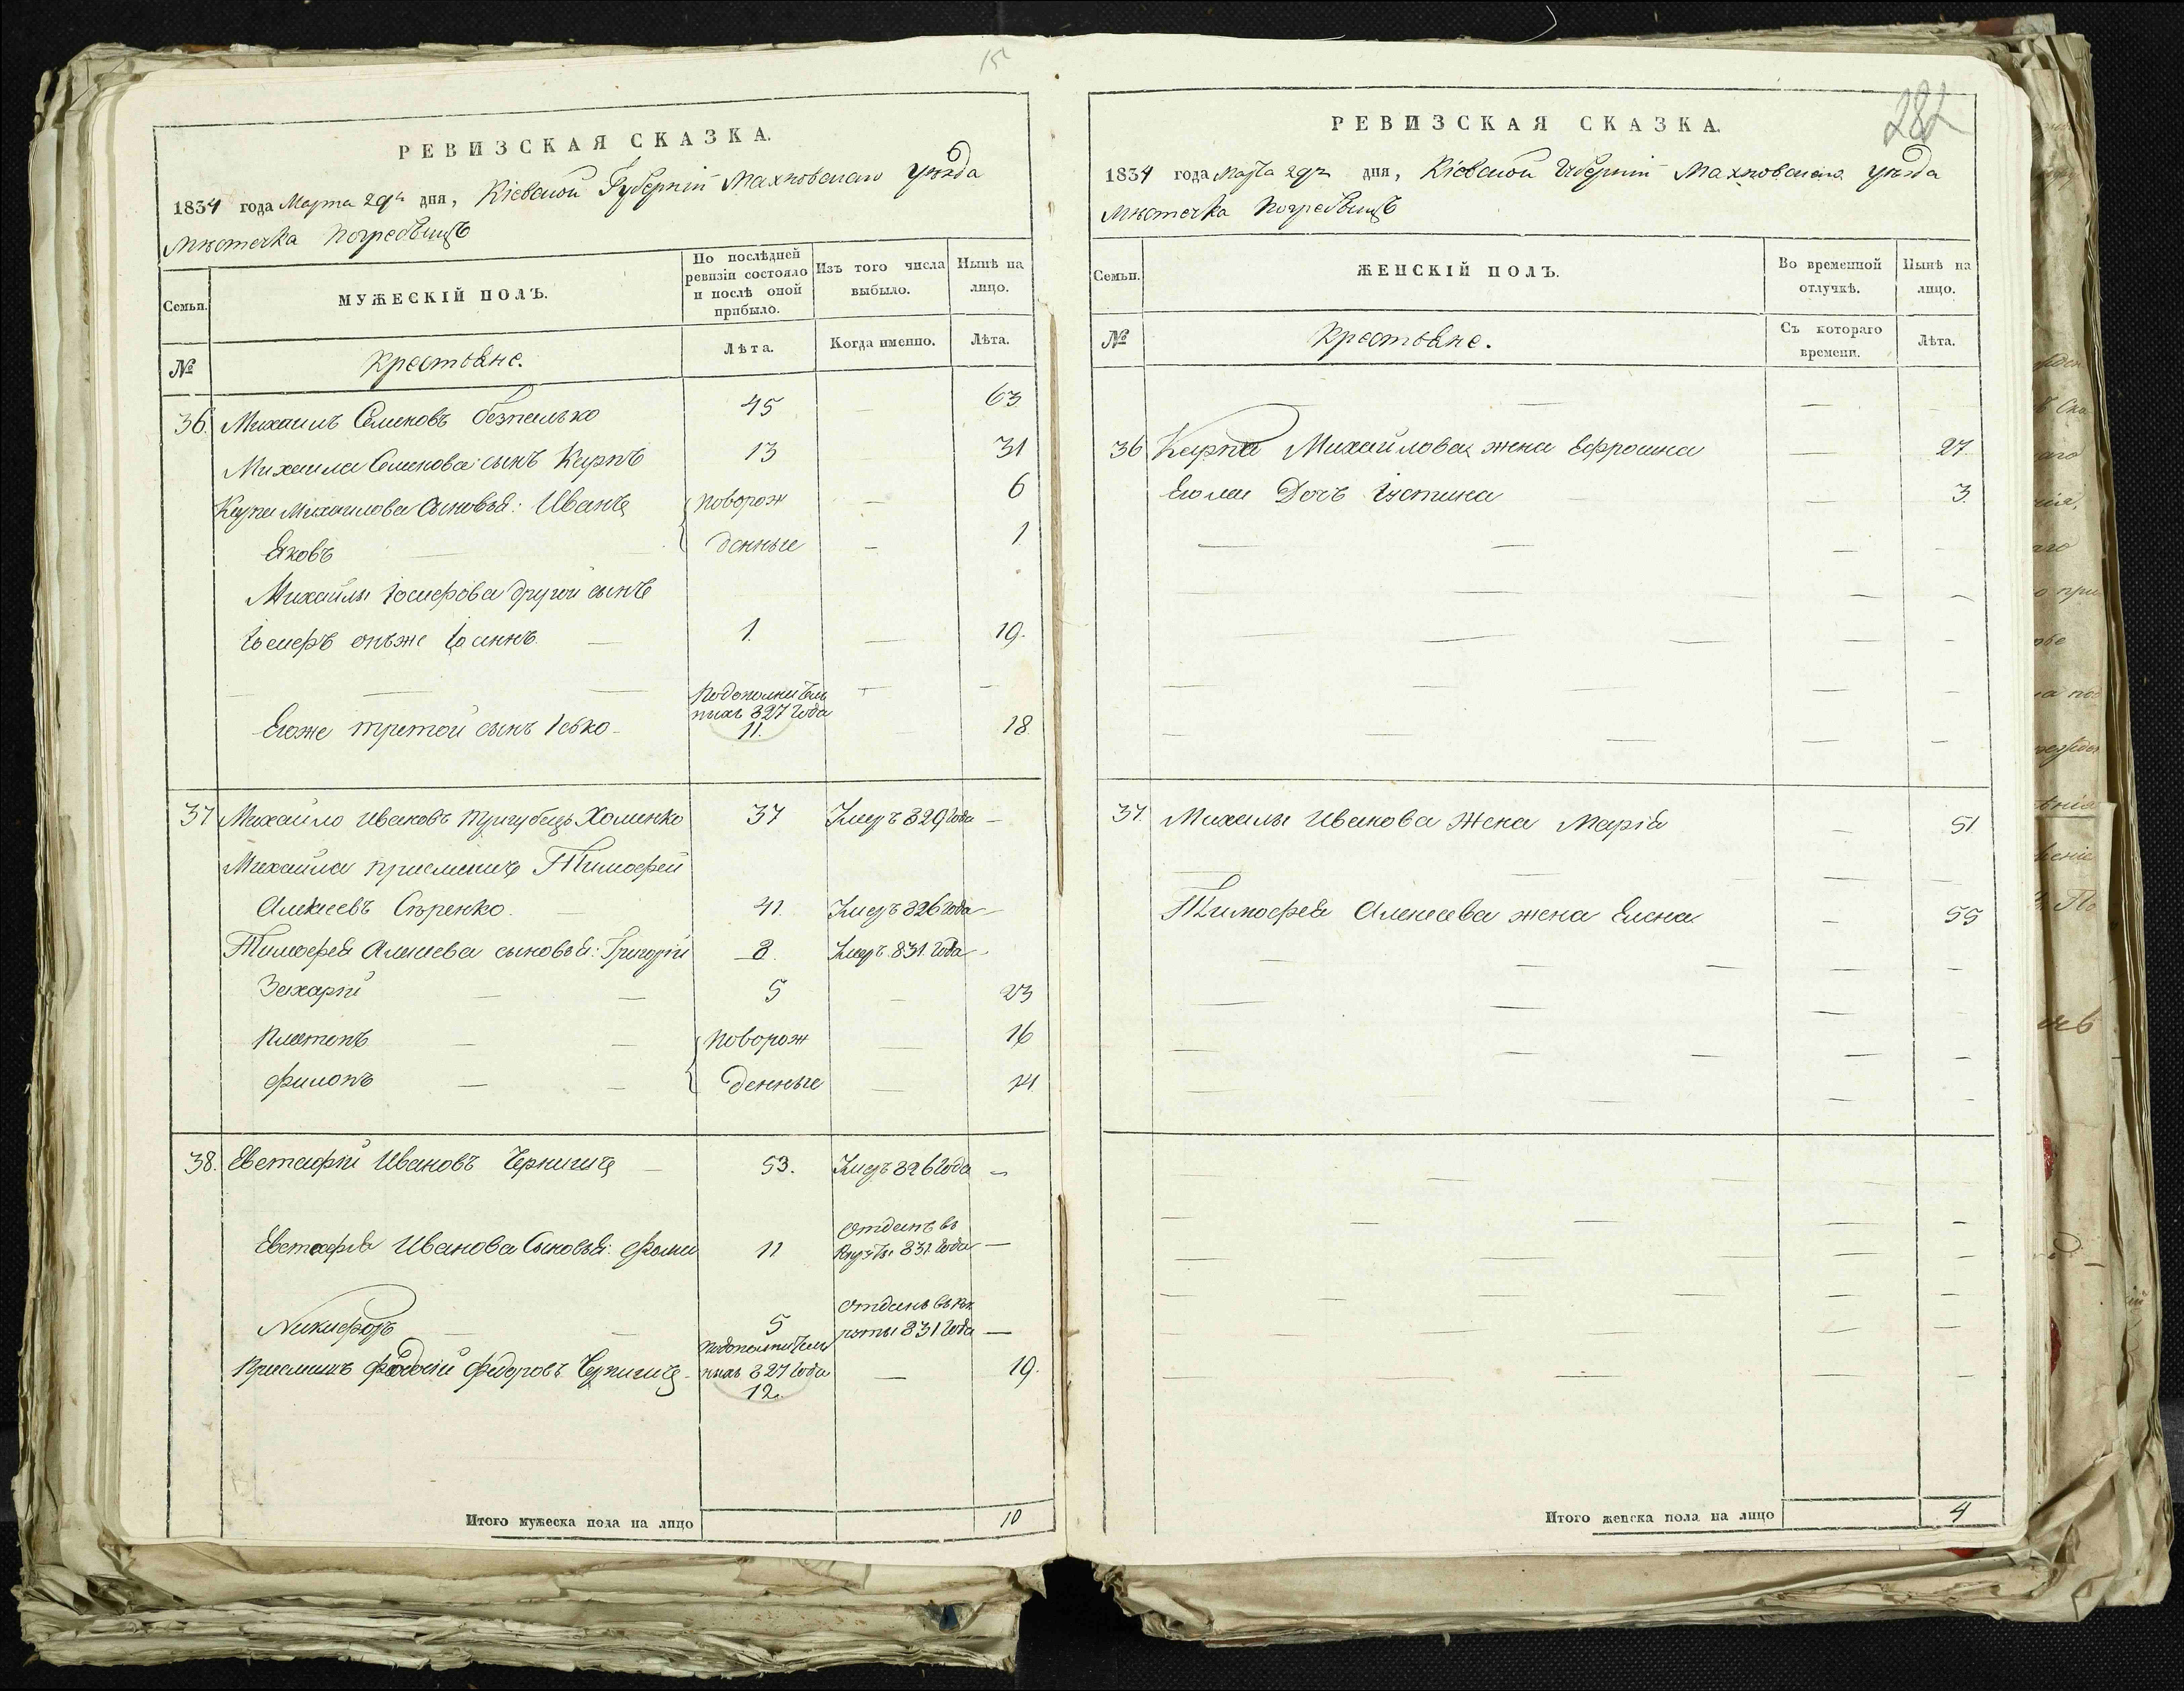 РЕВИЗСКАЯ СКАЗКА.
1834 года Марта 29го дня, Кіевской Губерніи Махновскаго уѣзда
Мѣстечка Погребищъ
Семьи.
МУЖЕСКІЙ ПОЛЪ.
По послѣдней ревизіи состояло и послѣ оной прибыло.
Изъ того числа выбыло.
Нынѣ на лицо.
№
Крестьяне.
Лѣта.
Когда именно.
Лѣта.
36. Михаилъ Семеновъ 45 — 63
Михаила Семенова сынъ Карпъ 13 31
Карпа Михаилова Сыновья: Иванъ новорож — 6
Яковъ — денные — 1
Михайлы Іосифова другой сынъ
Іосифъ онъже — 1. — 19.
— — — Подополнитель — —
ныхъ 827 года
Егоже третой сынъ Исько 11. 18
37 Михайло Ивановъ Тригубецъ Хоменко 37 Умеръ 829 года —
Михайла приемышъ Тимофей
Алексеевъ Сѣренко. — 41. Умеръ 826 года —
Тимофея Алексеева сыновья: Григорій 8. Умеръ 831. года
Захарій — — 5 — 23
Платонъ — — новорож — 16
Филонъ — — денные — 14
38. Евстафій Ивановъ — 53. Умеръ 826 года —
Отданъ въ
Евстафія Иванова Сыновья: Фома 11 Рекруты 831 года —
Отданъ въ рек
Никифоръ — — 5 руты 831 года —
Подополнитель
Приемышъ Федоровъ ныхъ 827 года — 19.
12.
Итого мужеска пола на лицо 10
15
282
РЕВИЗСКАЯ СКАЗКА.
1834 года Марта 29го дня, Кіевской Губерніи Махновскаго уѣзда
Мѣстечка Погребищъ
Семьи.
ЖЕНСКІЙ ПОЛЪ.
Во временной отлучкѣ.
Нынѣ на лицо.
№
Крестьяне.
Съ котораго времени.
Лѣта.
36 Карпа Михайлова жена Ефросина — 27
Дочь Іустина — — 3.
37. Михайлы Иванова Жена Марія — 51.
Тимофея Алексеева жена Елена — 55
Итого женска пола на лицо 4